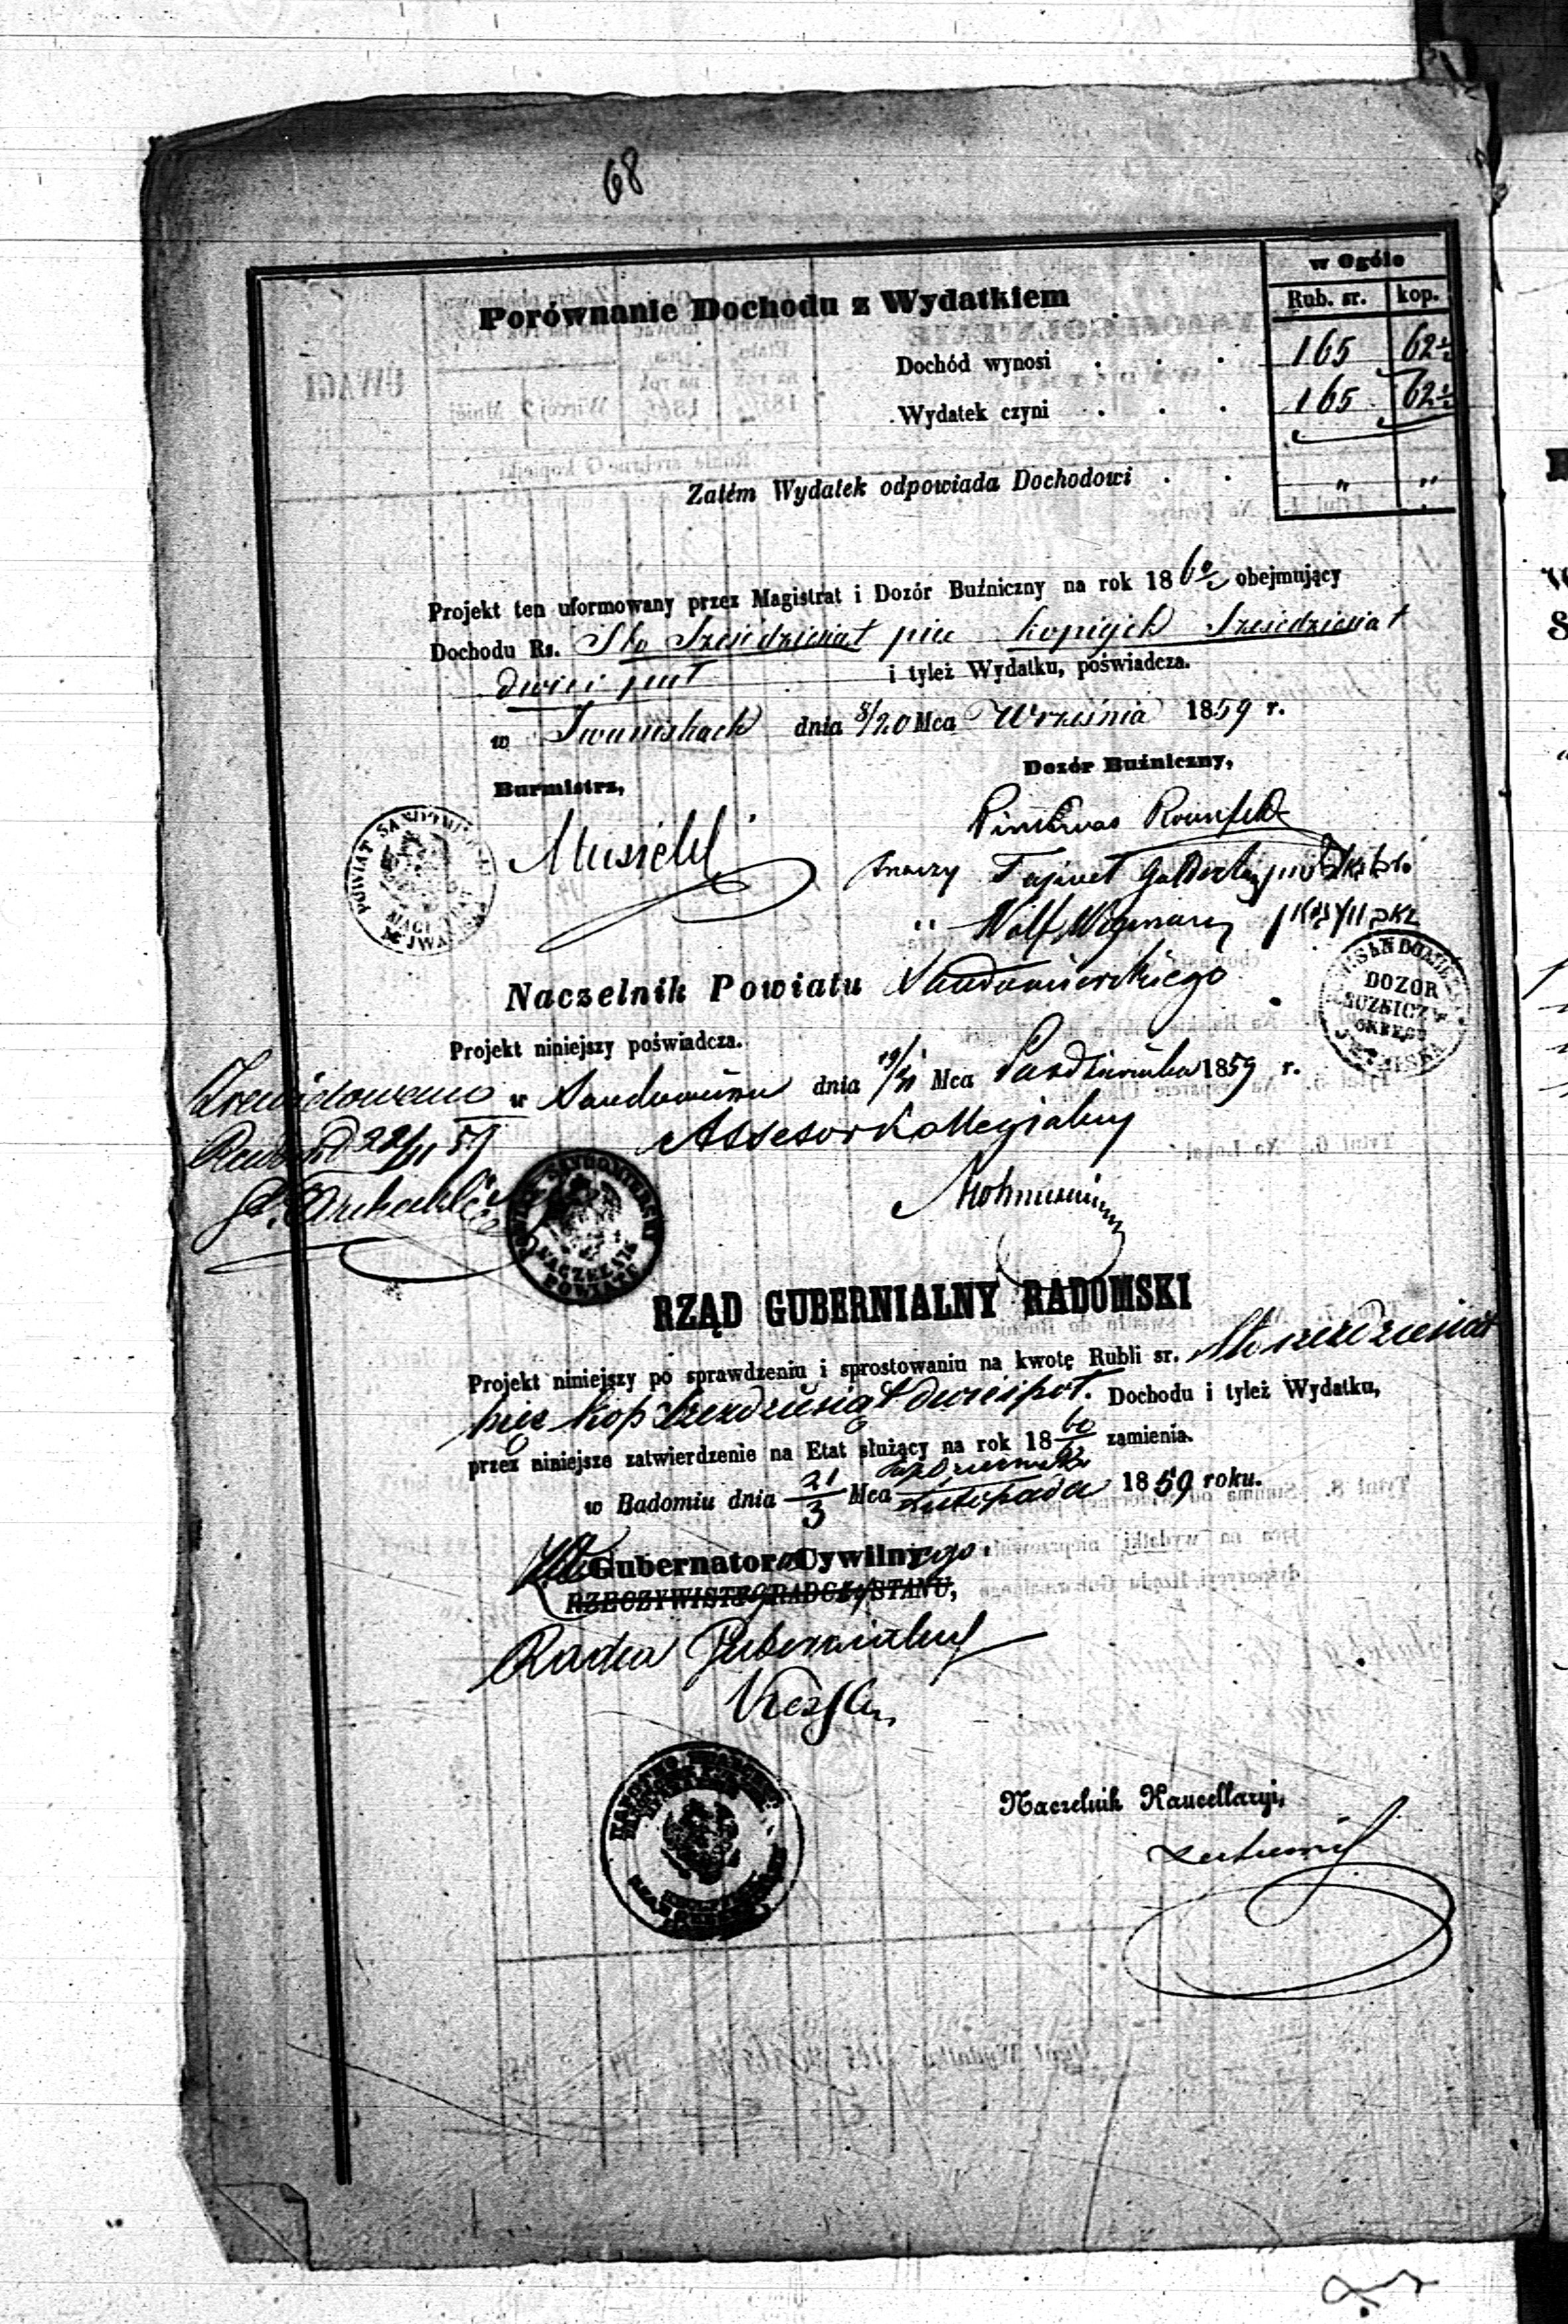 68
w Ogóle
Rub. sr. kop.
Porównanie Dochodu z Wydatkiem
Dochód wynosi . . . 165 62½
Wydatek czyni . . . 165 62½
Zatém Wydatek odpowiada Dochodowi . . „ „
Projekt ten uformowany przez Magistrat i Dozór Buźniczny na rok 1860/2 obejmujący
Dochodu Rs. Sto Sześćdziesiąt pięć kopiejek Sześćdziesiąt
dwie i pół i tyleż Wydatku, poświadcza.
w Iwaniskach dnia 8/20 Mca Września 1859 r.
Burmistrz,
Dozór Buźniczny,
Musielski
znaczy
„ Wolf
POWIAT SANDOMIERSKI
MAGISTRAT
DOZOR
BUZNICZY
OKRĘGU
Naczelnik Powiatu Sandomierskiego
Projekt niniejszy poświadcza.
Zrewidowano w Sandomierzu dnia 19/31 Mca Października 1859 r.
Radom d 22/11 59
Assesor Kollegialny
NACZELNIK
POWIATU
RZĄD GUBERNIALNY RADOMSKI
Projekt niniejszy po sprawdzeniu i sprostowaniu na kwotę Rubli sr. Sto sześćdziesiąt
pięć kop sześćdziesiąt dwie i pół. Dochodu i tyleż Wydatku,
przez niniejsze zatwierdzenie na Etat służący na rok 18 60/62 zamienia.
w Radomiu dnia 21/3 Mca Października/Listopada 1859 roku.
Gubernatora Cywilnego.
RZECZYWISTY RADCA STANU,
Radca Gubernialny
Naczelnik Kancellaryi,